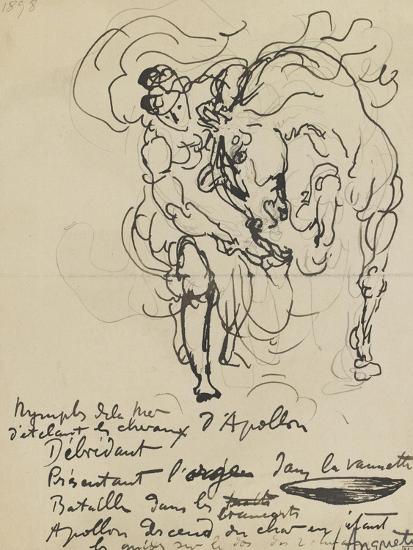 1898
Nymphe de la Mer
d'etelant les chevaux d'Apollon
Débridant
Présentant l'orge dans la vannette
Bataille dans les brancarts
Apollon descend du char en jetant
les sur le dos des 2
Anquetin